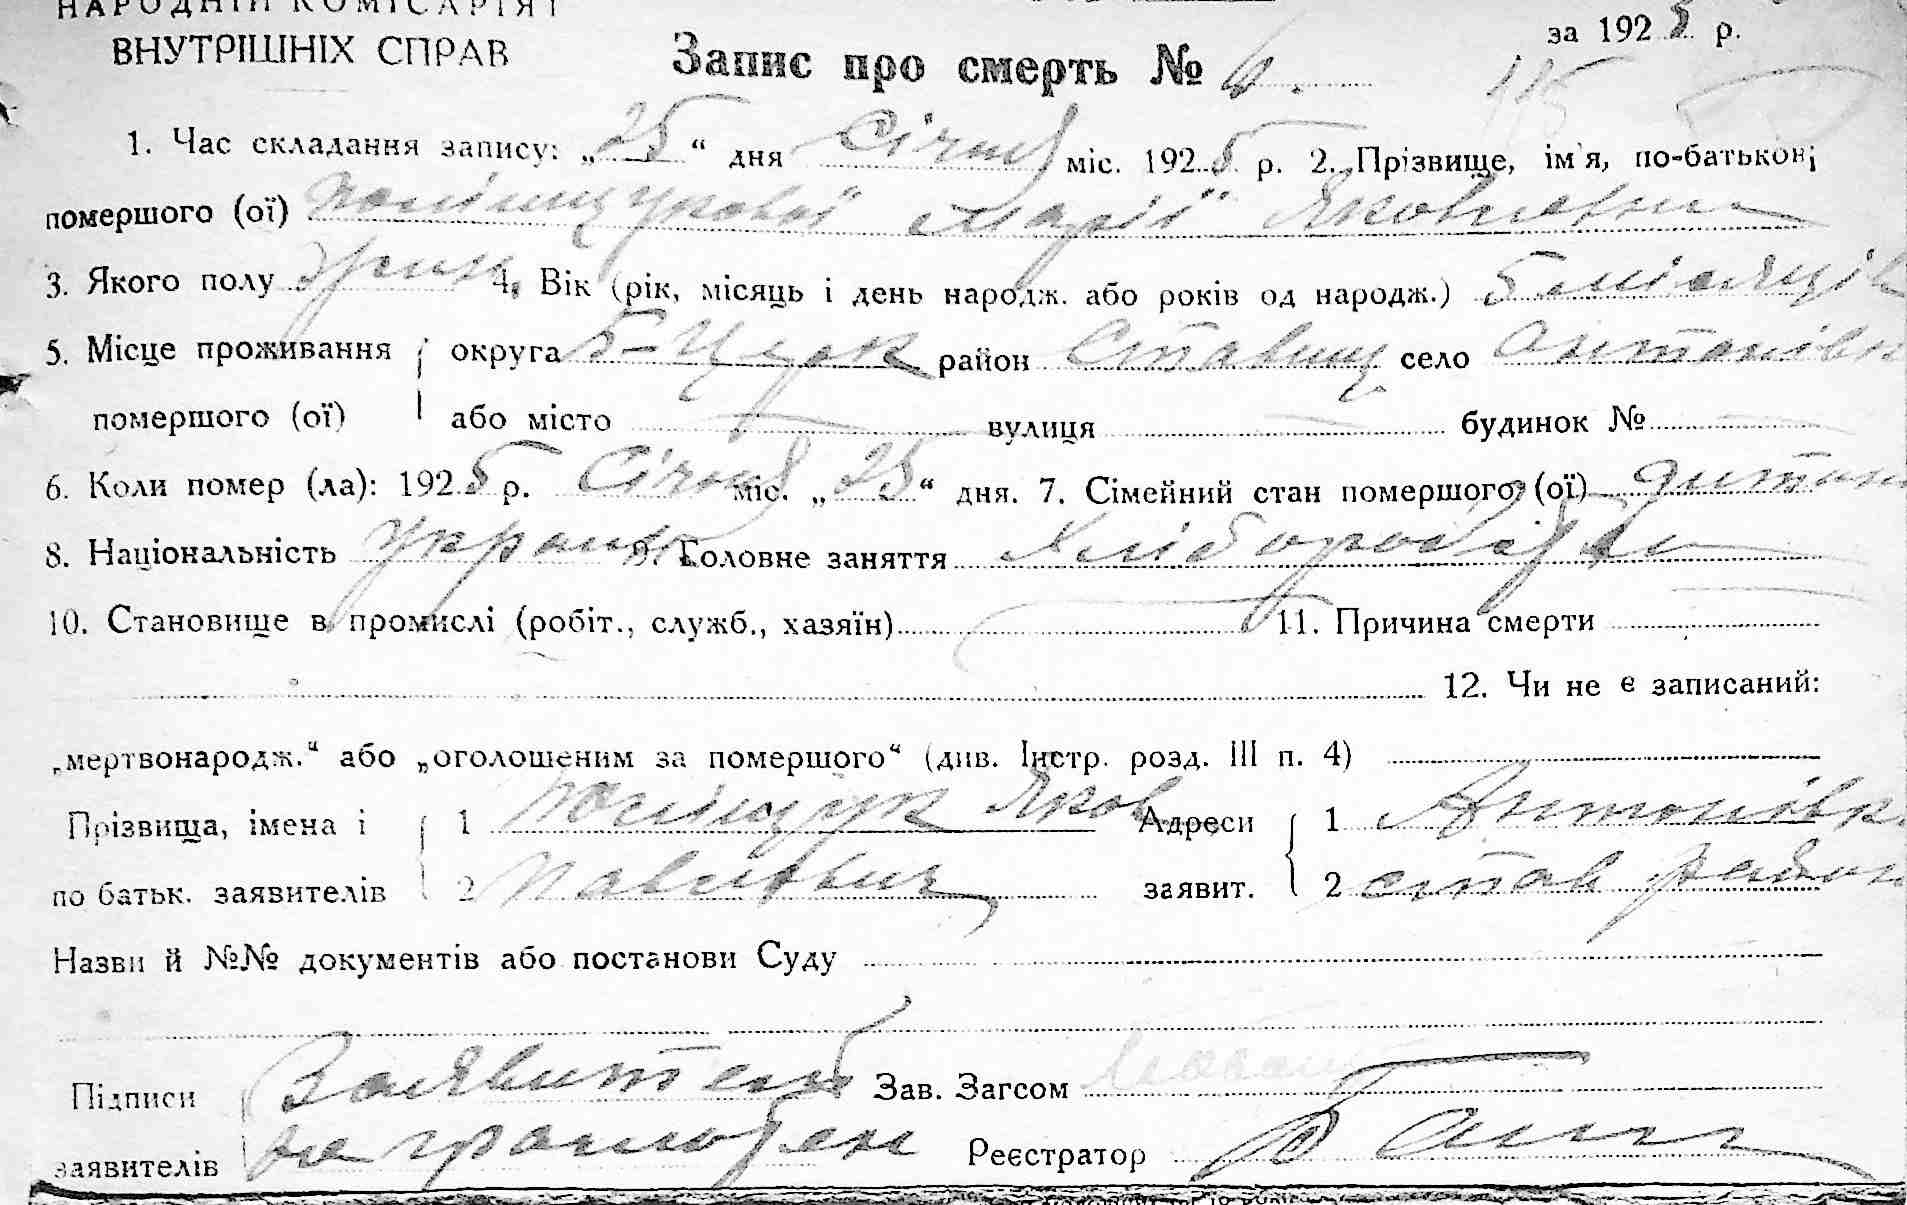 НАРОДНІЙ КОМІСАРІЯТ
ВНУТРІШНІХ СПРАВ
за 1925 р.
Запис про смерть № 6.
115
1. Час складання запису: „25“ дня Січня міс. 1925 р. 2. Прізвище, ім'я, по-батькові
помершого (ої) Поліщукової Марії Яковлевни
3. Якого полу жін 4. Вік (рік, місяць і день народж. або років од народж.) 5 місяців
5. Місце проживання округа Б-Церк район Ставищ село Антонівк
помершого (ої) або місто вулиця будинок №
6. Коли помер (ла): 1925 р. Січня міс. „25“ дня. 7. Сімейний стан помершого (ої) дитина
8. Національність Украін 9. Головне заняття Хлібороб
10. Становище в промислі (робіт., служб., хазяїн) 11. Причина смерти
12. Чи не є записаний:
„мертвонародж.“ або „оголошеним за помершого“ (див. Інстр. розд. III п. 4)
Прізвища, імена і 1 Поліщук Яков Адреси 1 Антонівк
по батьк. заявителів 2 Павлович заявит. 2 став район
Назви й №№ документів або постанови Суду
Підписи Заявитель Зав. Загсом
заявителів не грамотен Реєстратор